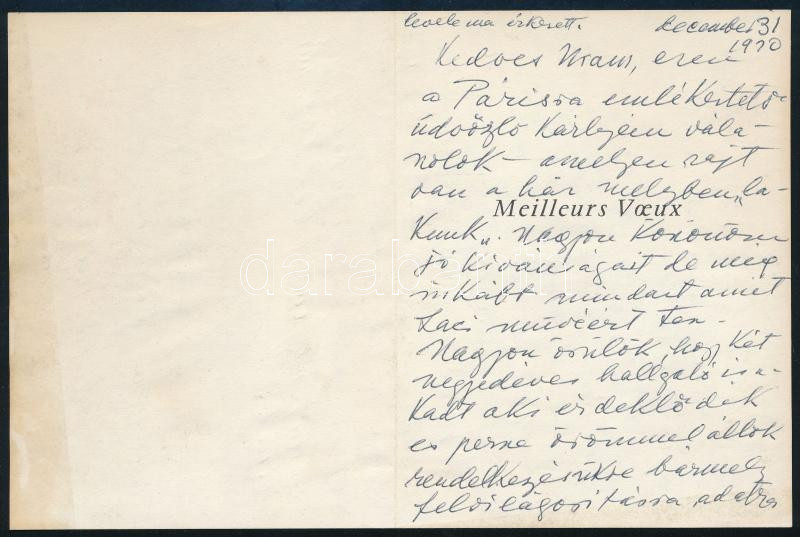 levele ma érkezett. december 31
1970
Kedves Uram, ezen
a Párisra emlékeztető
üdvözlő kártyám vála-
szolok - amelyen rajt
van a ház melyben „la-
Meilleurs Vœux
kunk„. Nagyon köszönöm
jó kívánságait de még
inkább mindazt amit
Laci művéért tesz.
Nagyon örülök, hogy két
negyedéves hallgató is a-
kadt aki érdeklődik
és persze örömmel állok
rendelkezésükre bármely
felvilágosításra, adatra
darabanth